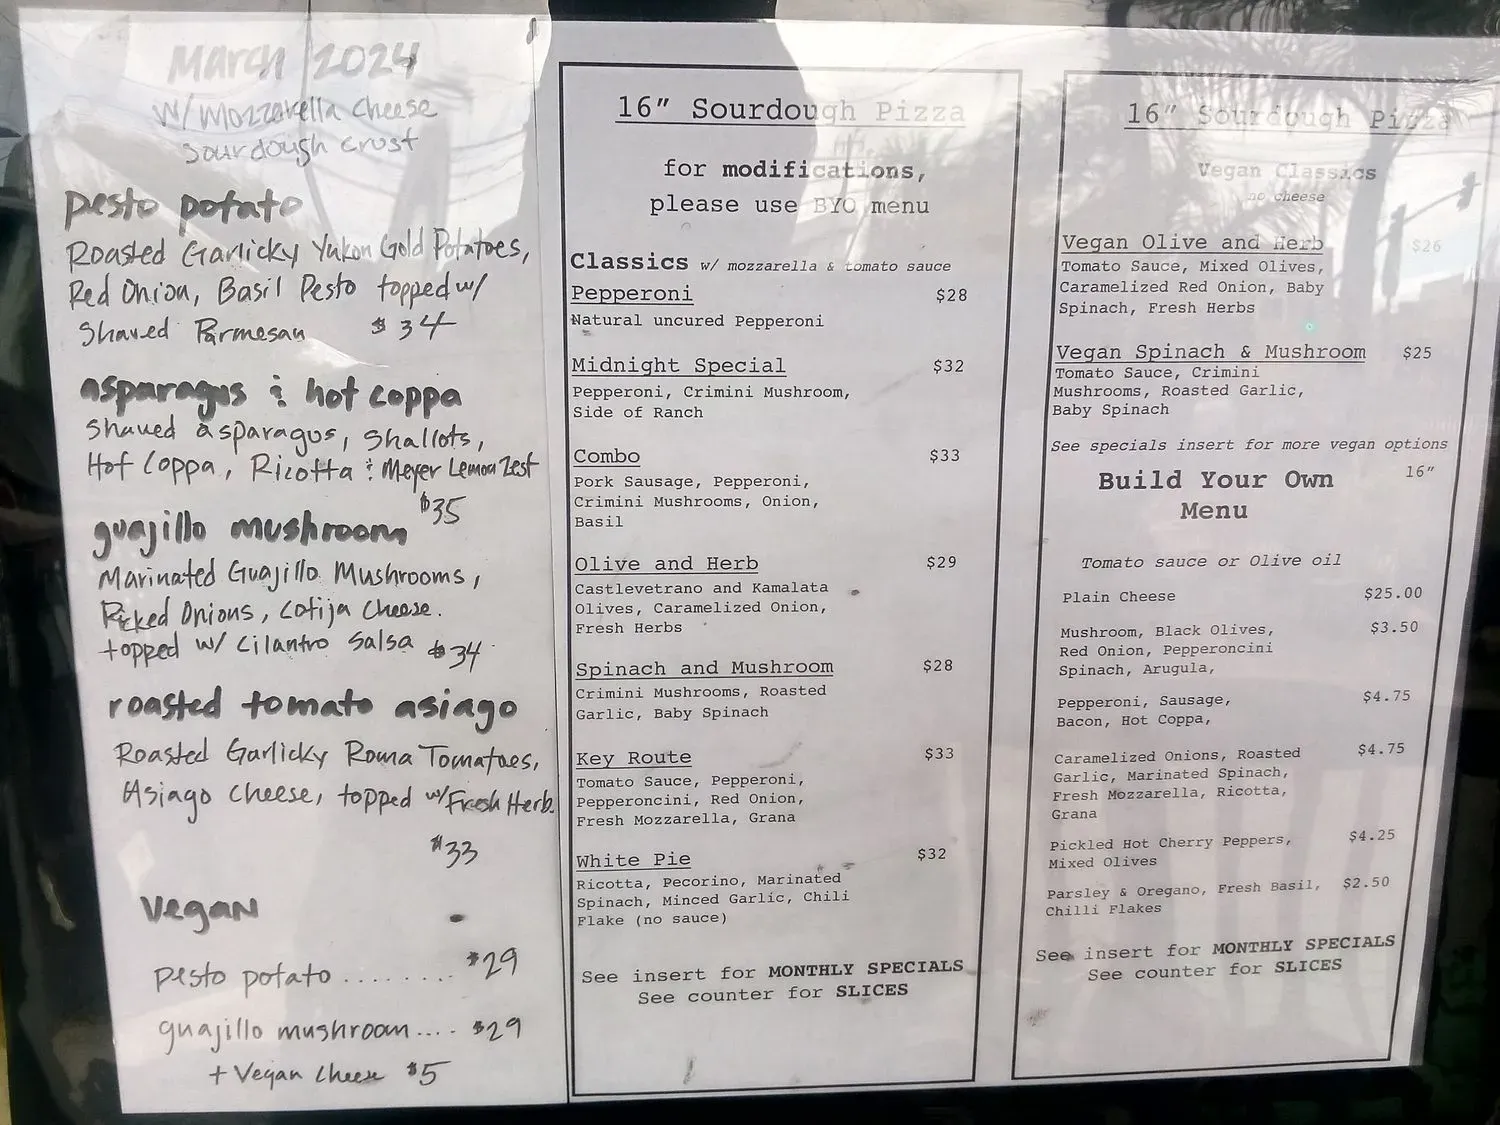 March 2024
w/ Mozzarella Cheese
Sourdough crust
pesto potato
Roasted Garlicky Yukon Gold Potatoes,
Red Onion, Basil Pesto topped w/
Shaved Parmesan $34
asparagus & hot coppa
Shaved asparagus, Shallots,
Hot Coppa, Ricotta & Meyer Lemon Zest
$35
guajillo mushroom
Marinated Guajillo Mushrooms,
Picked Onions, Cotija Cheese.
topped w/ Cilantro Salsa $34
roasted tomato asiago
Roasted Garlicky Roma Tomatoes,
Asiago Cheese, topped w/ Fresh Herb.
$33
Vegan
pesto potato ........ $29
guajillo mushroom .... $29
+ Vegan Cheese $5
16" Sourdough Pizza
for modifications,
please use BYO menu
Classics w/ mozzarella & tomato sauce
Pepperoni $28
Natural uncured Pepperoni
Midnight Special $32
Pepperoni, Crimini Mushroom,
Side of Ranch
Combo $33
Pork Sausage, Pepperoni,
Crimini Mushrooms, Onion,
Basil
Olive and Herb $29
Castlevetrano and Kamalata
Olives, Caramelized Onion,
Fresh Herbs
Spinach and Mushroom $28
Crimini Mushrooms, Roasted
Garlic, Baby Spinach
Key Route $33
Tomato Sauce, Pepperoni,
Pepperoncini, Red Onion,
Fresh Mozzarella, Grana
White Pie $32
Ricotta, Pecorino, Marinated
Spinach, Minced Garlic, Chili
Flake (no sauce)
See insert for MONTHLY SPECIALS
See counter for SLICES
16" Sourdough Pizza
Vegan Classics
no cheese
Vegan Olive and Herb $26
Tomato Sauce, Mixed Olives,
Caramelized Red Onion, Baby
Spinach, Fresh Herbs
Vegan Spinach & Mushroom $25
Tomato Sauce, Crimini
Mushrooms, Roasted Garlic,
Baby Spinach
See specials insert for more vegan options
Build Your Own 16"
Menu
Tomato sauce or Olive oil
Plain Cheese $25.00
Mushroom, Black Olives, $3.50
Red Onion, Pepperoncini
Spinach, Arugula,
Pepperoni, Sausage, $4.75
Bacon, Hot Coppa,
Caramelized Onions, Roasted $4.75
Garlic, Marinated Spinach,
Fresh Mozzarella, Ricotta,
Grana
Pickled Hot Cherry Peppers, $4.25
Mixed Olives
Parsley & Oregano, Fresh Basil, $2.50
Chilli Flakes
See insert for MONTHLY SPECIALS
See counter for SLICES